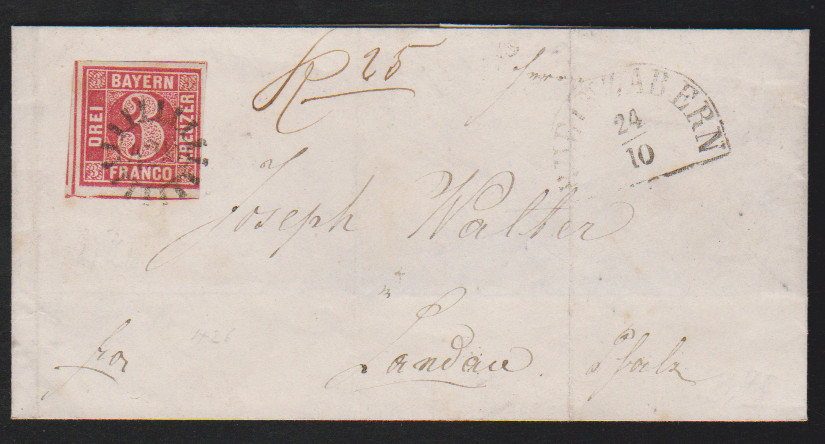 BAYERN
DREI 3 KREUZER
FRANCO
25
Herrn
ZABERN
24
10
Joseph Walter
fro Landau Pfalz
426